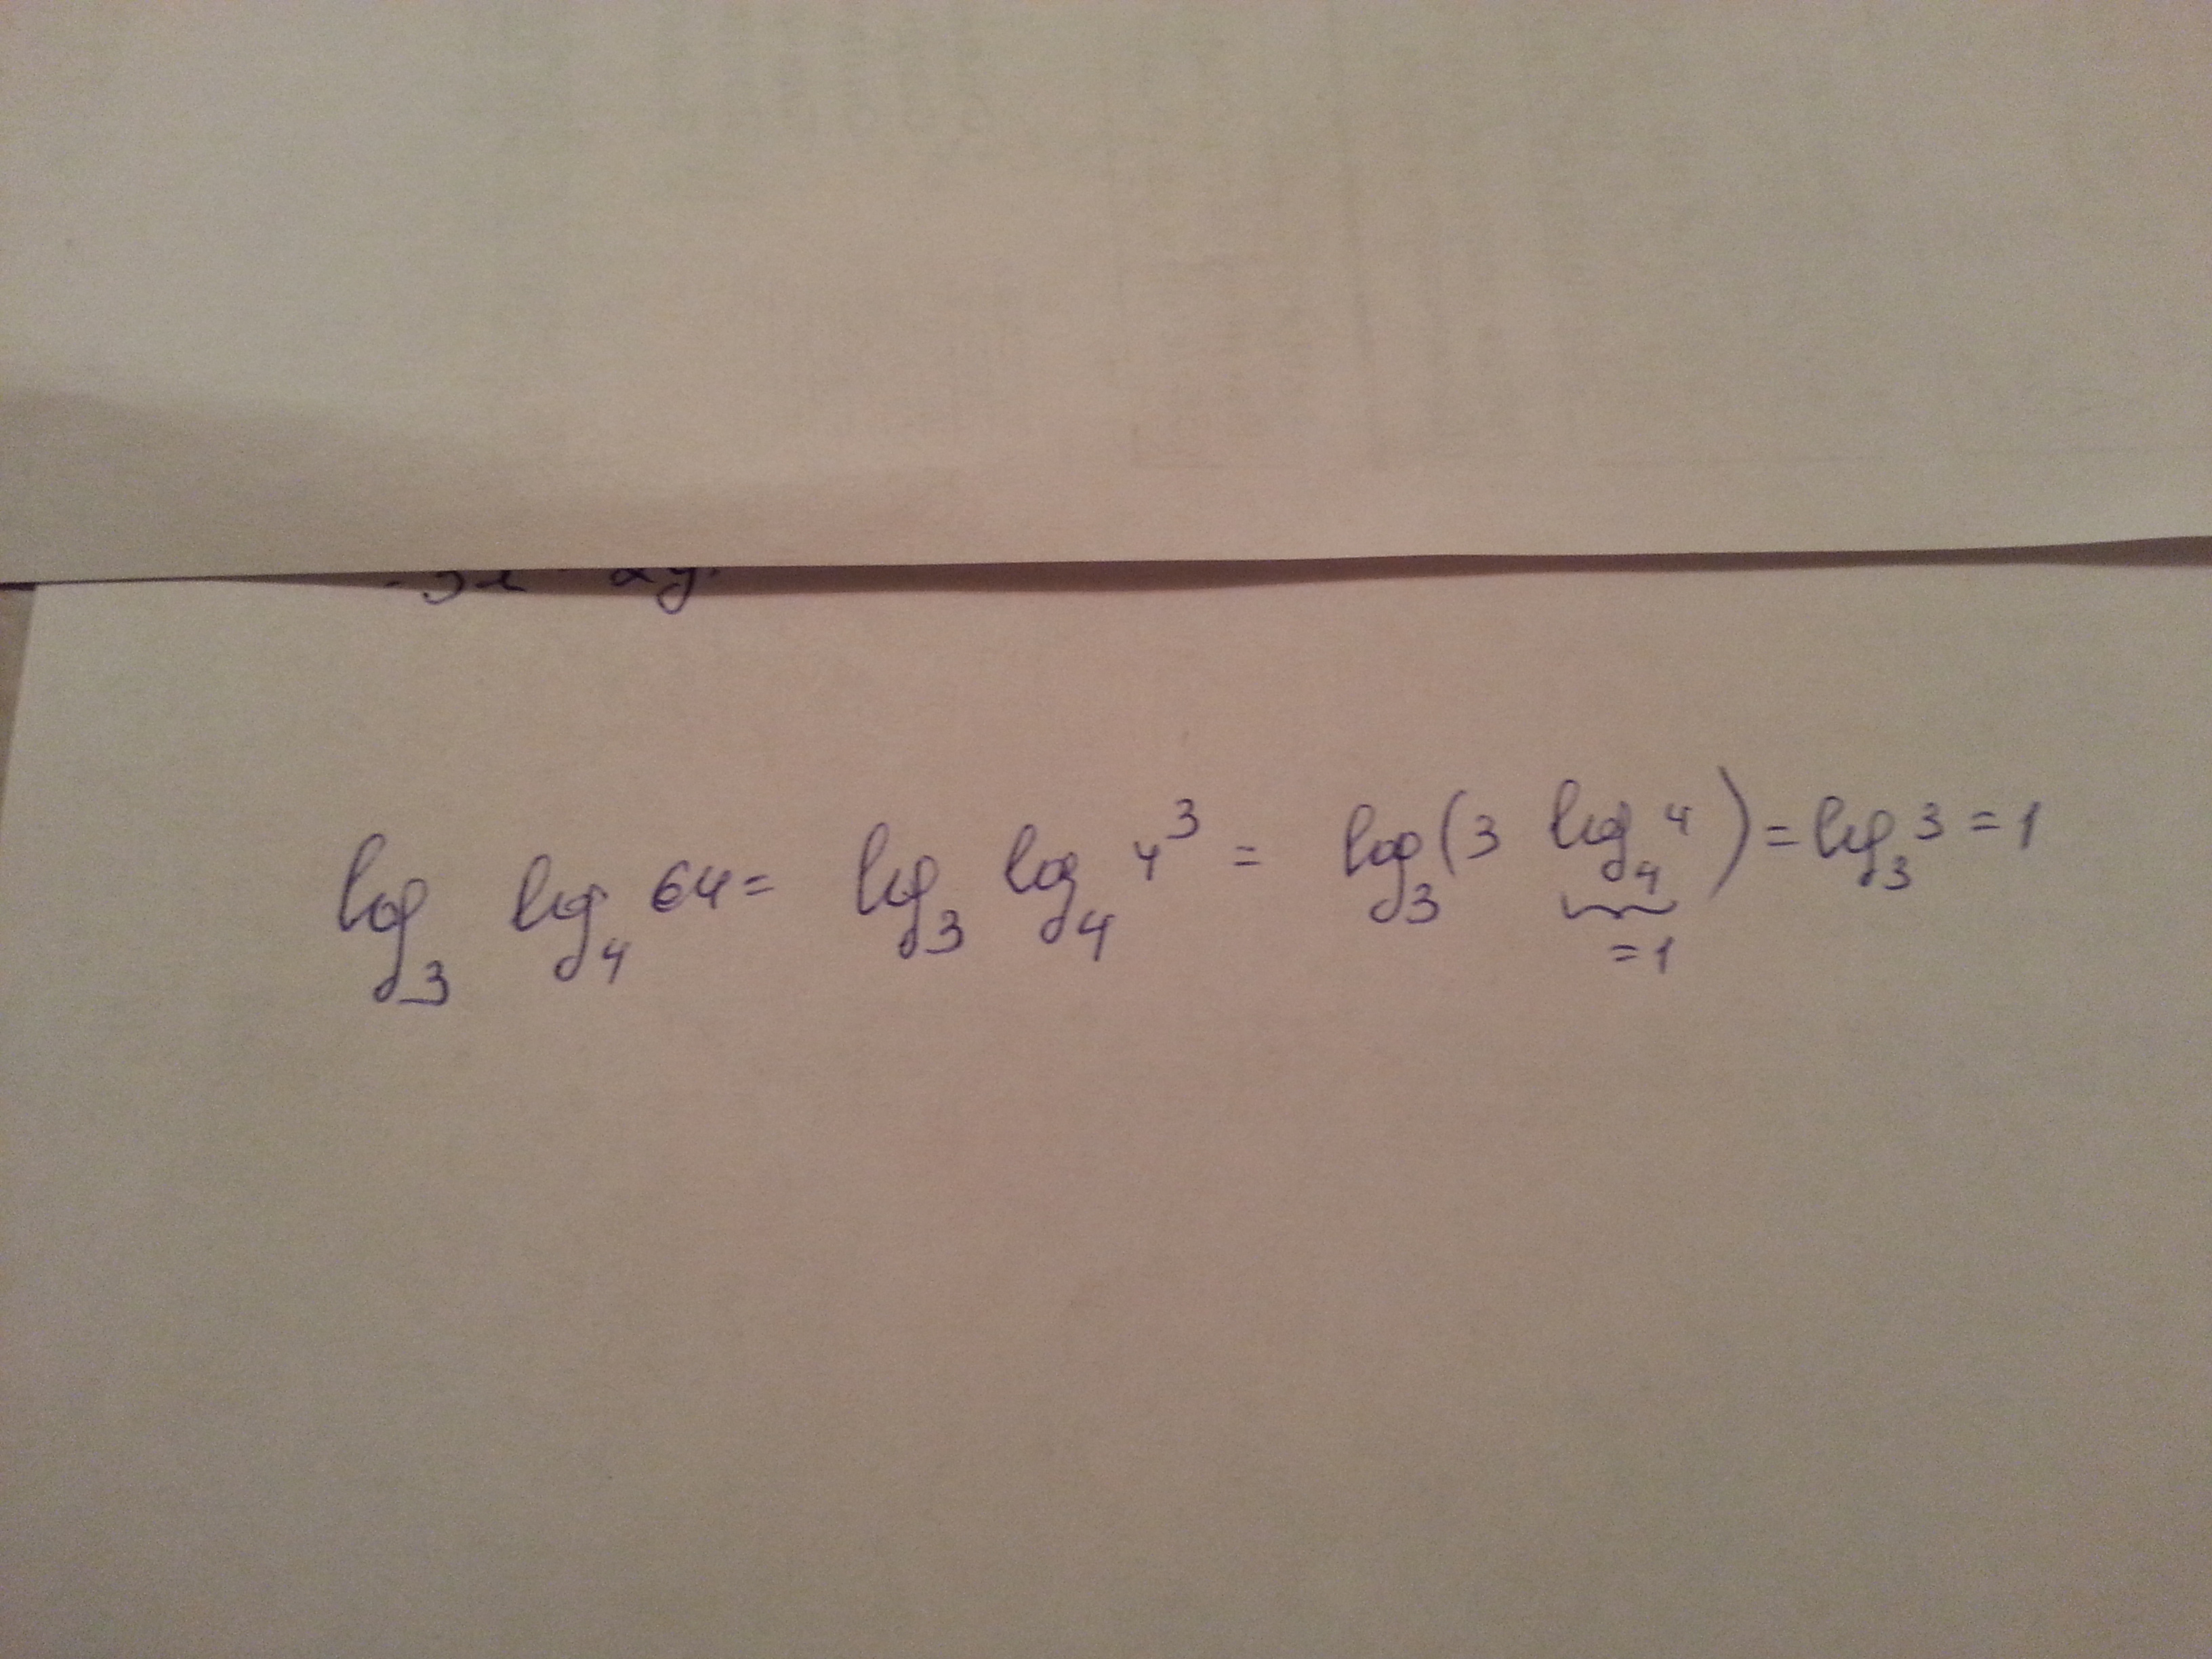 log₃ log₄ 64 = log₃ log₄ 4³ = log₃(3 log₄ 4) = log₃ 3 = 1
= 1